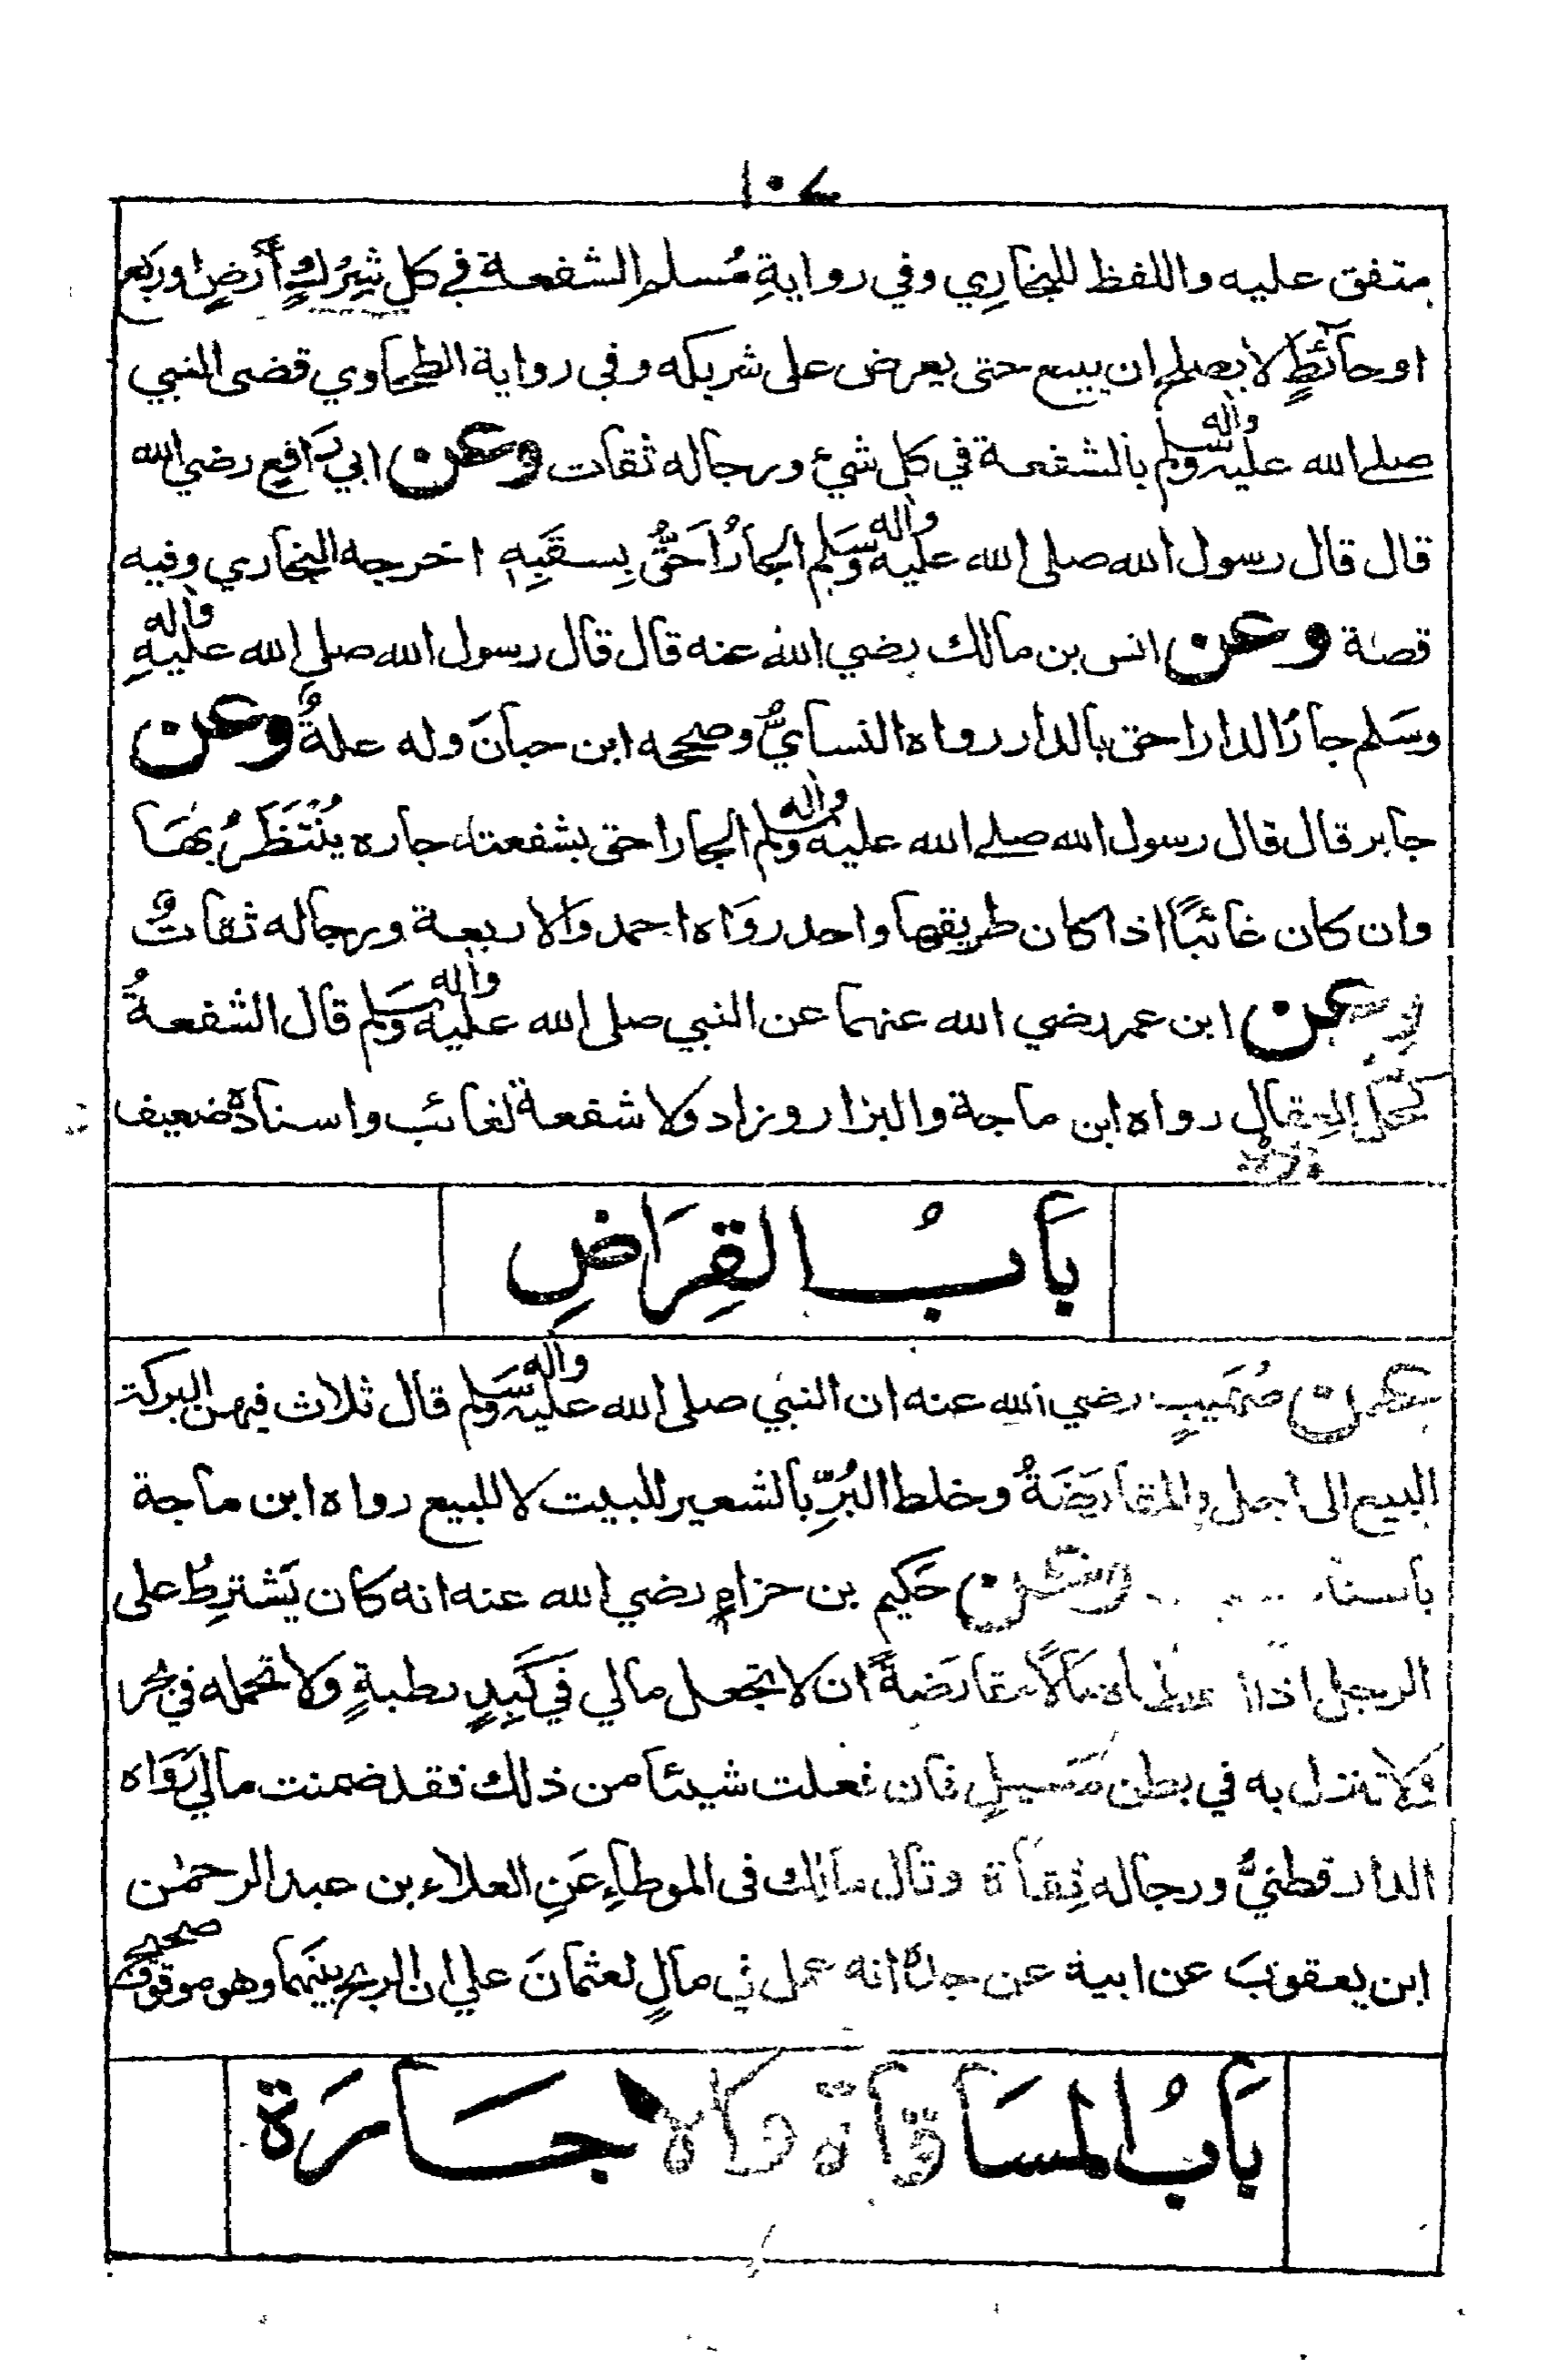 متفق عليه واللفظ للبخارِي وفي روايةِ مُسلم الشفعة في كل شِرْكٍ أرضٍ او ربع
او حآئطٍ لا يصلح ان يبيع حتى يعرض على شريكه وفى رواية الطحاوي قضى النبي
صلے الله عليه واله وسلم بالشفعة في كل شيء ورجاله ثقات وعن ابي رَافعٍ رضي الله
قال قال رسول الله صلى الله عليه واله وسَلم الجارُ احَقُّ بِسقَبِهٖ اخرجه البخاري وفيه
قصة وعن انس بن مالك رضي الله عنه قال قال رسول الله صلى الله عليهِ واله
وسَلم جارُ الدار احق بالدار رواه النسايُّ وصححه ابن حبانَ وله علةٌ وعن
جابر قال قال رسول الله صلے الله عليه واله وسلم الجار احق بشفعة جاره يُنْتَظَرُ بهَا
وان كان غائبًا اذا كان طريقهما واحد روَاه احمد وَالاربعة ورجاله ثقاتٌ
وعن ابن عمر رضي الله عنهما عن النبي صلى الله عليه واله وسَلم قال الشفعةُ
كحل العِقالِ رواه ابن ماجة والبزار وزاد ولا شفعة لغائب واسنادهٗ ضعيف
بَابُ القِرَاضِ
عن صُهَيبٍ رضي الله عنه ان النبي صلى الله عليه واله وسَلم قال ثلاث فيهن البركة
البيع الى اجل والمقارَضَةُ وخلط البُرِّ بالشعير للبيت لا للبيع رواه ابن ماجة
باسناد وعن حَكيم بن حزامٍ رضي الله عنه انه كان يَشترِطُ على
الرجل اذا اعطاه مَالًا مقارَضةً ان لا تجعل مالي في كَبِدٍ رطبةٍ ولا تحمله في بحر
ولا تنزل به في بطن مَسيلٍ فان فعلت شيئا من ذلك فقد ضمنت مالي رَوَاه
الدارقطنيُّ ورجاله ثِقاة وقال مالك فى الموطاءِ عَنِ العلاء بن عبد الرحمٰن
ابن يعقوبَ عن ابيه عن جدهٗ انه عمل في مالٍ لعثمانَ علي ان الربح بينَهما وهو موقوف صحيح
بَابُ المسَاقَاة والاجَارَة